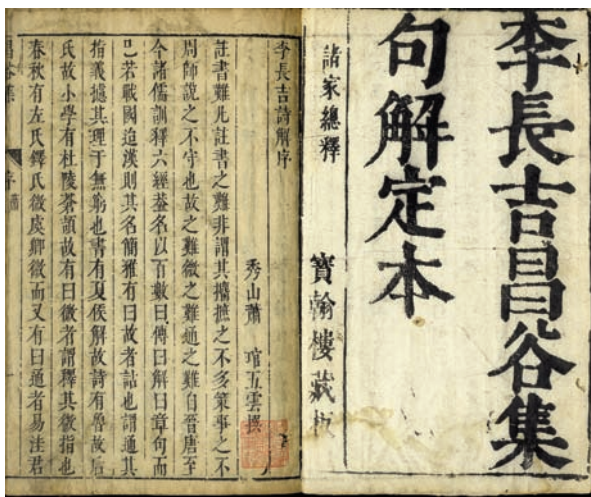 李長吉昌谷集
句解定本
諸家總釋
寶翰樓藏板
李長吉詩解序
秀山蕭 琯五雲撰
註書難凡註書之難非謂其攟摭之不多策事之不
周師說之不守也故之難微之難通之難自晉唐至
今諸儒訓釋六經葢名以百數曰傳曰解曰章句而
已若戰國迨漢則其名簡雅有曰故者詁也謂通其
指義據其理于無窮也書有夏侯解故詩有魯故后
氏故小學有杜陵蒼頡故有曰微者謂釋其微指也
春秋有左氏鐸氏微虞卿微而又有曰通者易洼君